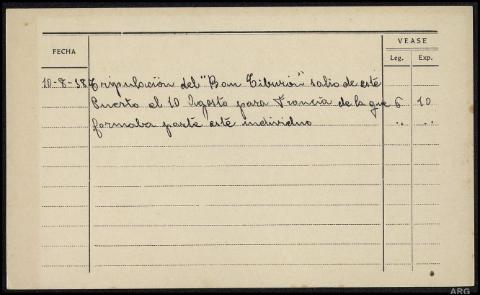 VEASE
FECHA
Leg. Exp.
10-8-38 Tripulación del "Bou Tiburón" salio de este
Puerto el 10 Agosto para Francia de la que 6 10
formaba parte este individuo " "
ARG